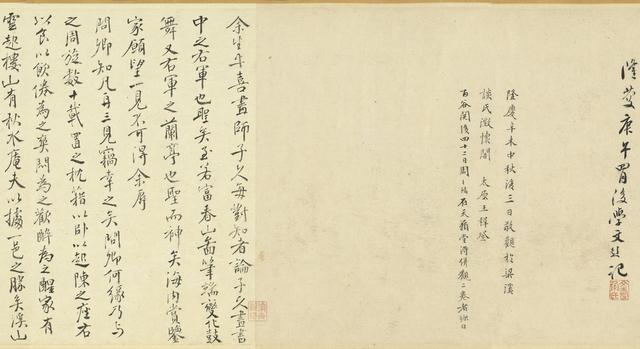 隆慶庚午四月後學文彭記
隆慶辛未中秋後三日敬觀於梁溪
談氏澂懷閣 太原王穉登
百谷閱後四十二日周天球在天籟堂得併觀二卷
余生平喜畫師子久每對知者論子久畫書
中之右軍也聖矣至若富春山圖筆端變化鼓
舞又右軍之蘭亭也聖而神矣海內賞鑒
家願望一見不可得余辱
問卿知凡再三見竊幸之矣問卿何緣乃與
之周旋數十載置之枕藉以臥以起陳之座右
以食以飲倦為之爽悶為之歡醉為之醒家有
雲起樓山有秋水庵夫以據一邑之勝矣溪山